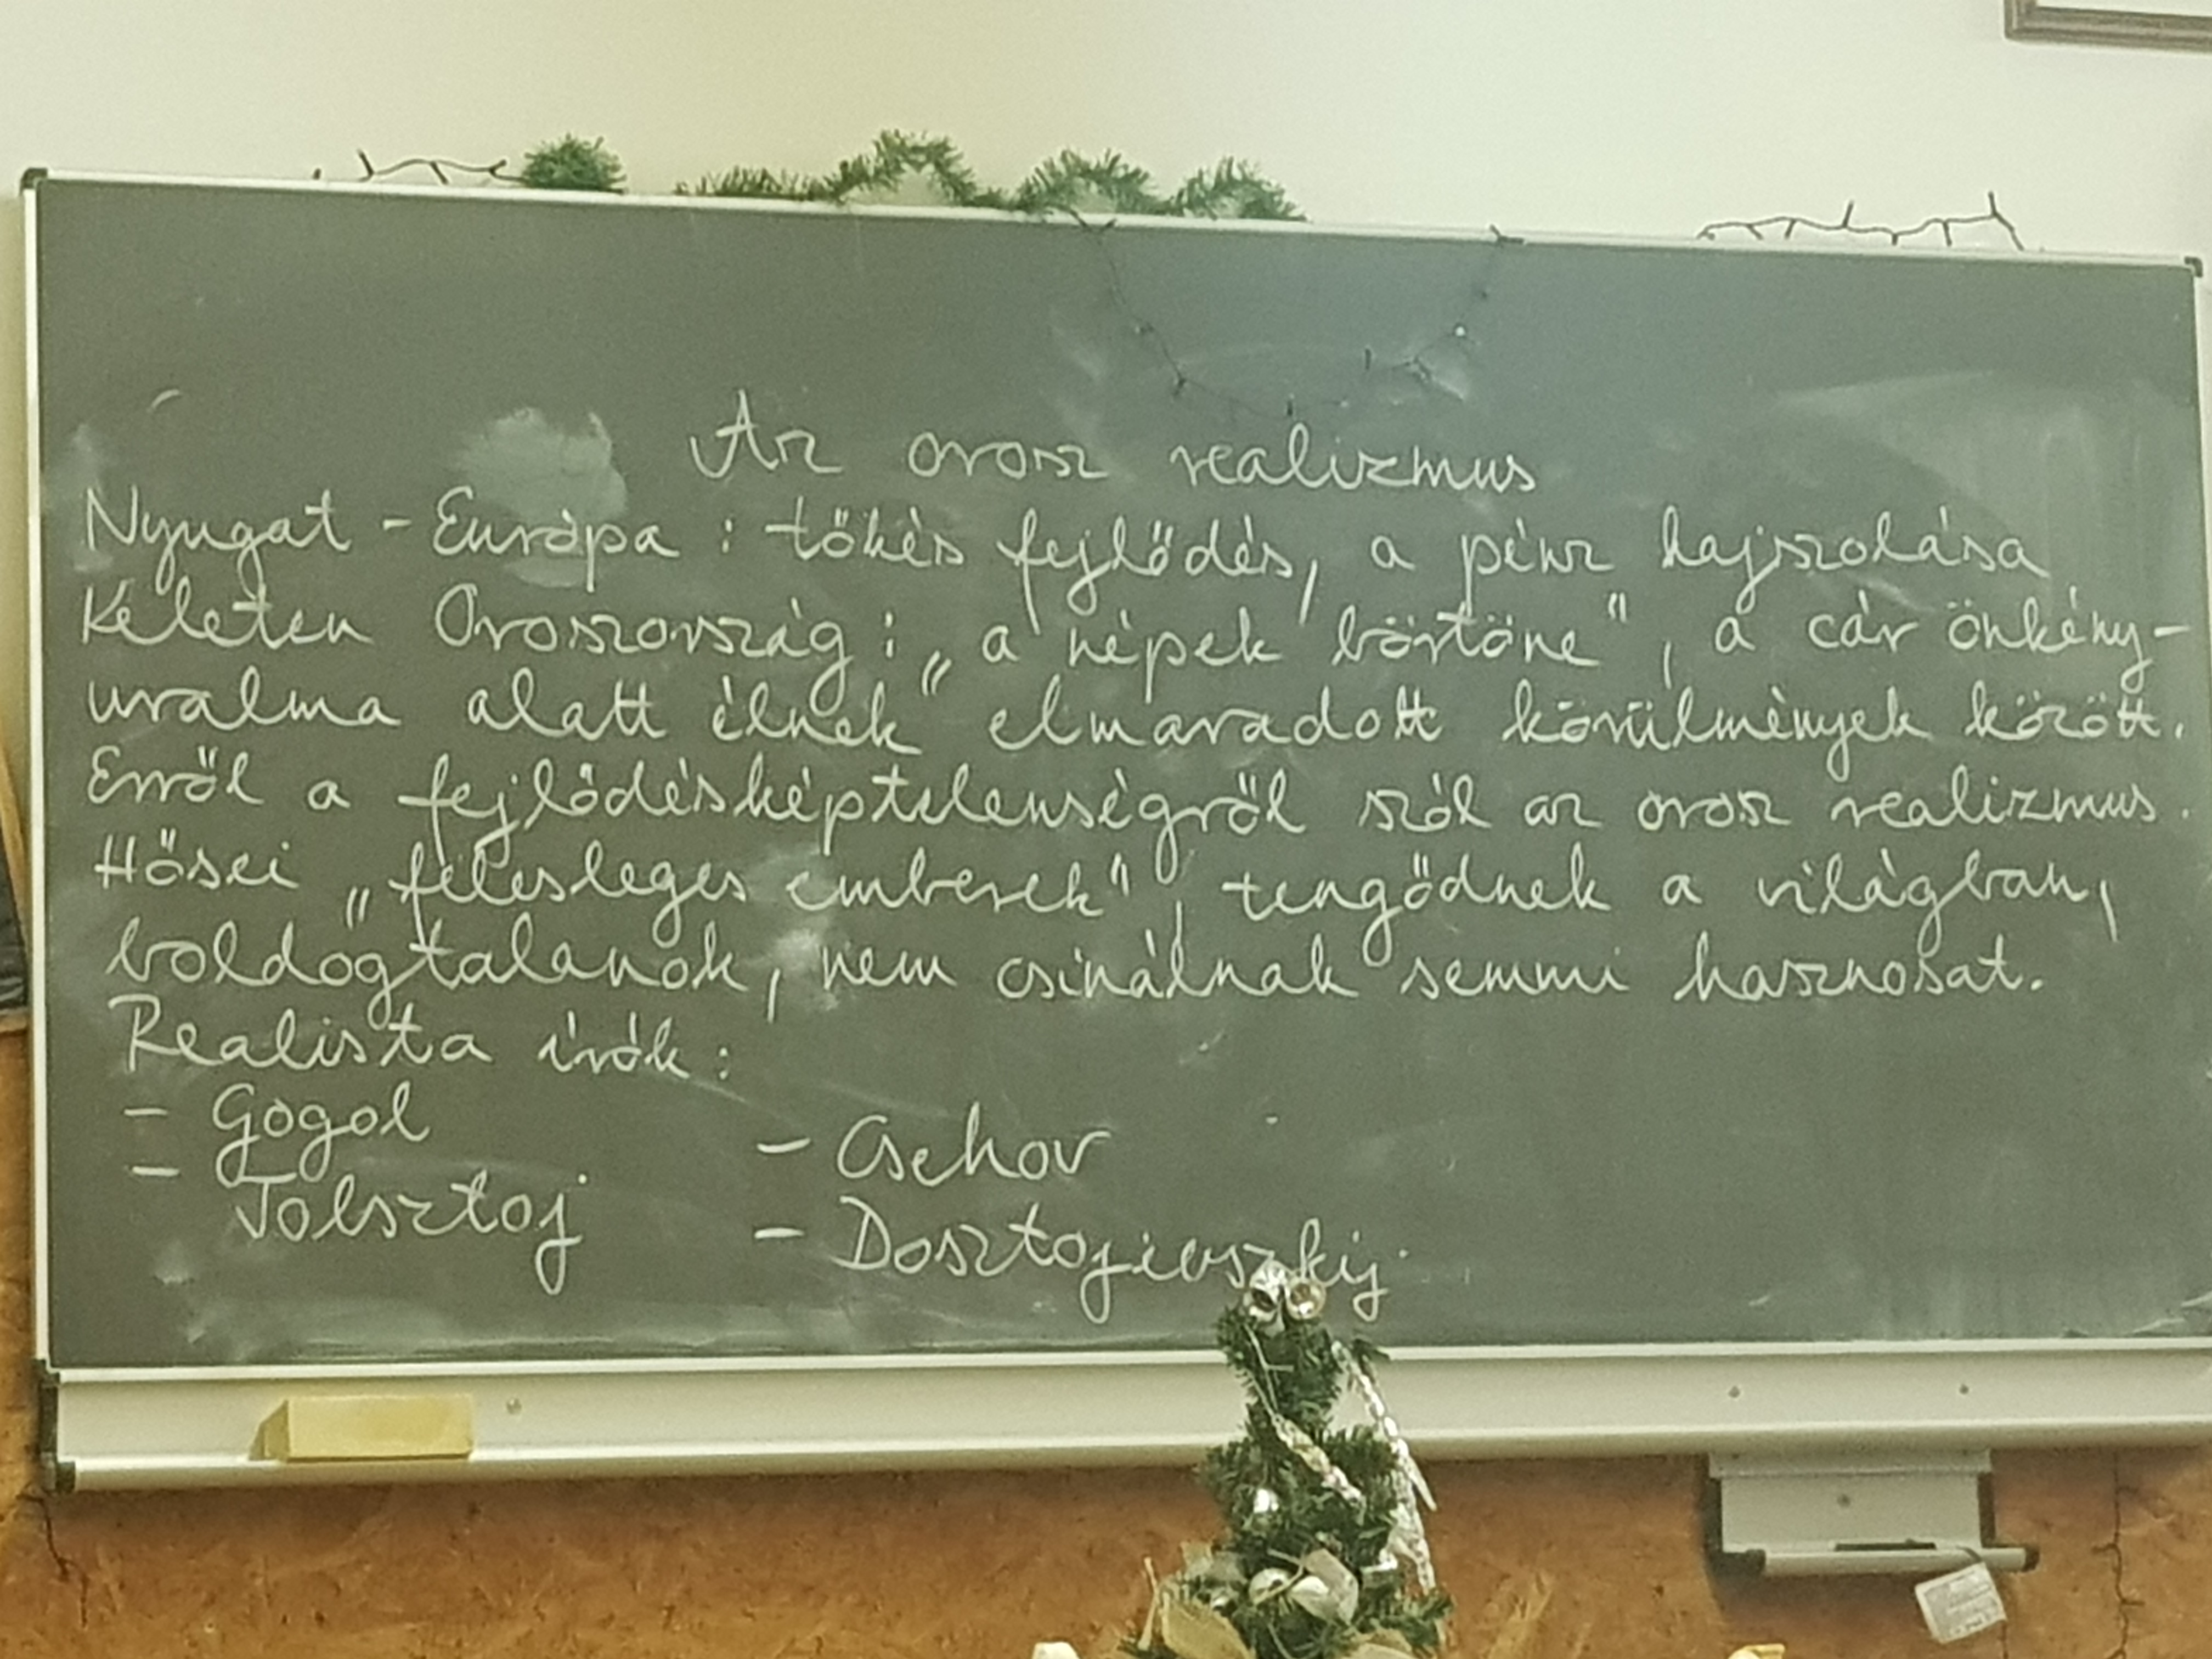 Az orosz realizmus
Nyugat - Európa : tőkés fejlődés, a pénz hajszolása
Keleten Oroszország : „a népek börtöne", a cár önkény-
uralma alatt élnek elmaradott körülmények között.
Erről a fejlődésképtelenségről szól az orosz realizmus.
Hősei „felesleges emberek", tengődnek a világban,
boldogtalanok, nem csinálnak semmi hasznosat.
Realista írók :
- Gogol
- Tolsztoj
- Csehov
- Dosztojevszkij